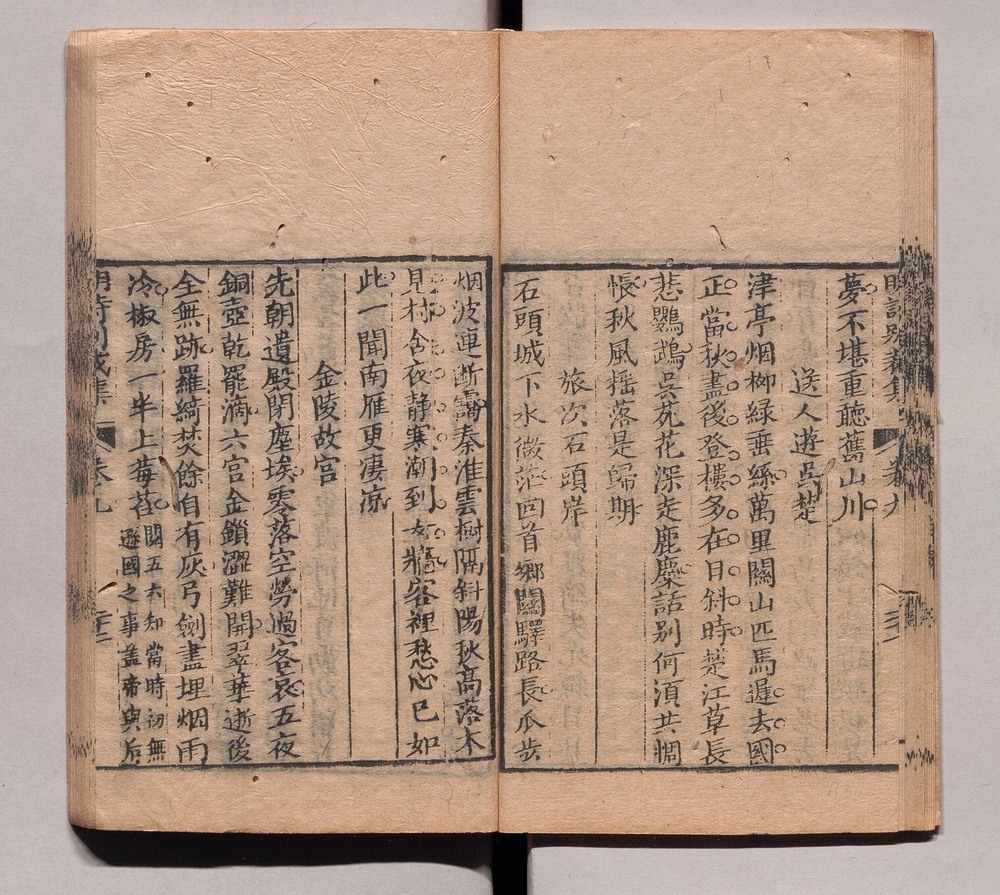 明詩別裁集 卷九
夢不堪重聽舊山川
送人遊吳楚
津亭烟柳綠垂絲萬里關山匹馬遲去國
正當秋盡後登樓多在日斜時楚江草長
悲鸚鵡吳苑花深走鹿麋話別何須共惆
悵秋風摇落是歸期
旅次石頭岸
石頭城下水微茫回首鄉關驛路長瓜步
烟波連斷靄秦淮雲樹隔斜陽秋高落木
見村舍夜静寒潮到女牆客裡愁心已如
此一聞南雁更凄凉
金陵故宫
先朝遺殿閉塵埃零落空勞過客哀五夜
銅壺乾罷滴六宫金鎖澀難開翠華逝後
全無跡羅綺焚餘自有灰弓劍盡埋烟雨
冷椒房一半上莓苔
閱五六知當時初無
遜國之事蓋帝與后
明詩別裁集 卷九